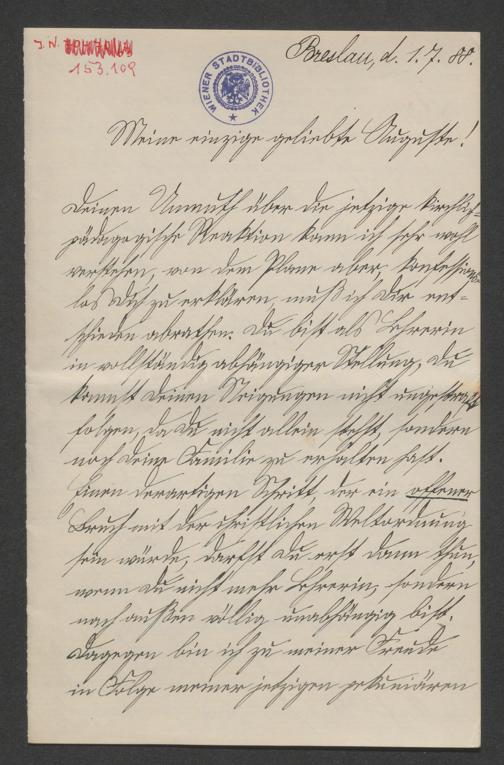 J. N.
153.109
WIENER STADTBIBLIOTHEK
Breslau, d. 1. 7. 88.
Meine einzige geliebte Auguste!
Deinen Unmuth über die jetzige kirchlich-
pädagogische Reaktion kann ich sehr wohl
verstehen, von dem Plane aber, konfessions-
los Dich zu erklären, muß ich Dir ent-
schieden abrathen. Du bist als Lehrerin
in vollständig abhängiger Stellung, Du
kannst Deinen Neigungen nicht ungestraft
folgen, da Du nicht allein stehst, sondern
noch Deine Familie zu erhalten hast.
Einen derartigen Schritt, der ein offener
Bruch mit der christlichen Weltordnung
sein würde, darfst Du erst dann thun,
wenn Du nicht mehr Lehrerin, sondern
nach außen völlig unabhängig bist.
Dagegen bin ich zu meiner Freude
in Folge meiner jetzigen pekuniären